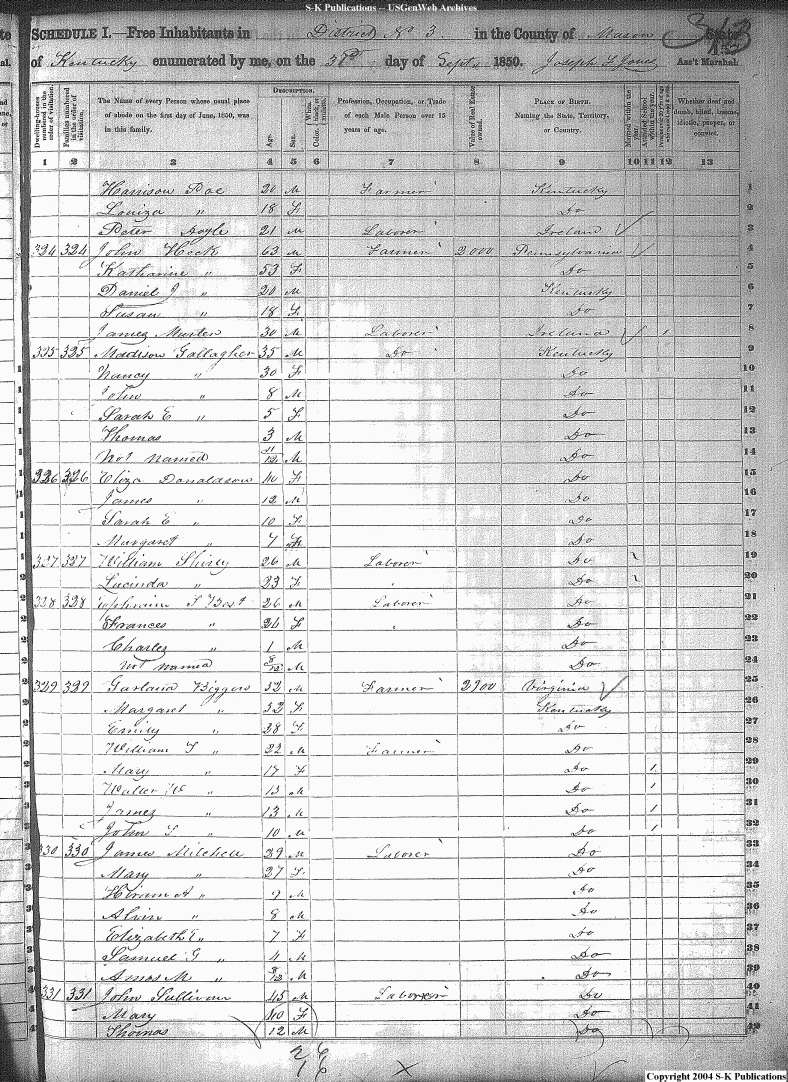 S-K Publications -- USGenWeb Archives
SCHEDULE I.—Free Inhabitants in District No 3 in the County of Mason State
of Kentucky enumerated by me, on the 3rd day of Sept 1850. Joseph F. Jones Ass't Marshal.
Dwelling-houses numbered in the order of visitation. Families numbered in the order of visitation. The Name of every Person whose usual place of abode on the first day of June, 1850, was in this family. DESCRIPTION. Age. Sex. Color, White, black, or mulatto. Profession, Occupation, or Trade of each Male Person over 15 years of age. Value of Real Estate owned. PLACE OF BIRTH. Naming the State, Territory, or Country. Married within the year. Attended School within the year. Whether deaf and dumb, blind, insane, idiotic, pauper, or convict.
1 2 3 4 5 6 7 8 9 10 11 12 13
Harrison Poe 20 M Farmer Kentucky 1
Louiza " 18 F Do 2
Peter Doyle 21 M Laborer Ireland 3
324 324 John Hock 63 M Farmer 2000 Pennsylvania 4
Katharine " 53 F Do 5
Daniel J " 20 M Kentucky 6
Susan " 18 F Do 7
James 30 M Laborer Ireland 8
325 325 Madison Gallagher 35 M Do Kentucky 9
Nancy " 30 F Do 10
John " 8 M Do 11
Sarah E " 5 F Do 12
Thomas 3 M Do 13
Not Named 11/12 M Do 14
326 326 Eliza Donaldson 40 F Do 15
James " 12 M Do 16
Sarah E " 10 F Do 17
Margaret " 7 F Do 18
327 327 William Shirly 26 M Laborer Do 19
Lucinda " 23 F Do 20
328 328 Ephraim T Best 26 M Laborer Do 21
Frances " 24 F Do 22
Charles " 1 M Do 23
Not Named 8/12 M Do 24
329 329 Garland Biggers 52 M Farmer 2900 Virginia 25
Margaret " 52 F Kentucky 26
Emily " 28 F Do 27
William T " 22 M Farmer Do 28
Mary " 17 F Do 1 29
Walter W " 15 M Do 1 30
James " 13 M Do 1 31
John T " 10 M Do 1 32
330 330 James Mitchell 29 M Laborer Do 33
Mary " 27 F Do 34
Hiram A " 9 M Do 35
Alvin " 8 M Do 36
Elizabeth E " 7 F Do 37
Samuel G " 4 M Do 38
Amos M " 8/12 M Do 39
331 331 John Sullivan 45 M Laborer Do 40
Mary 40 F Do 41
Thomas 12 M Do 42
Copyright 2004 S-K Publications